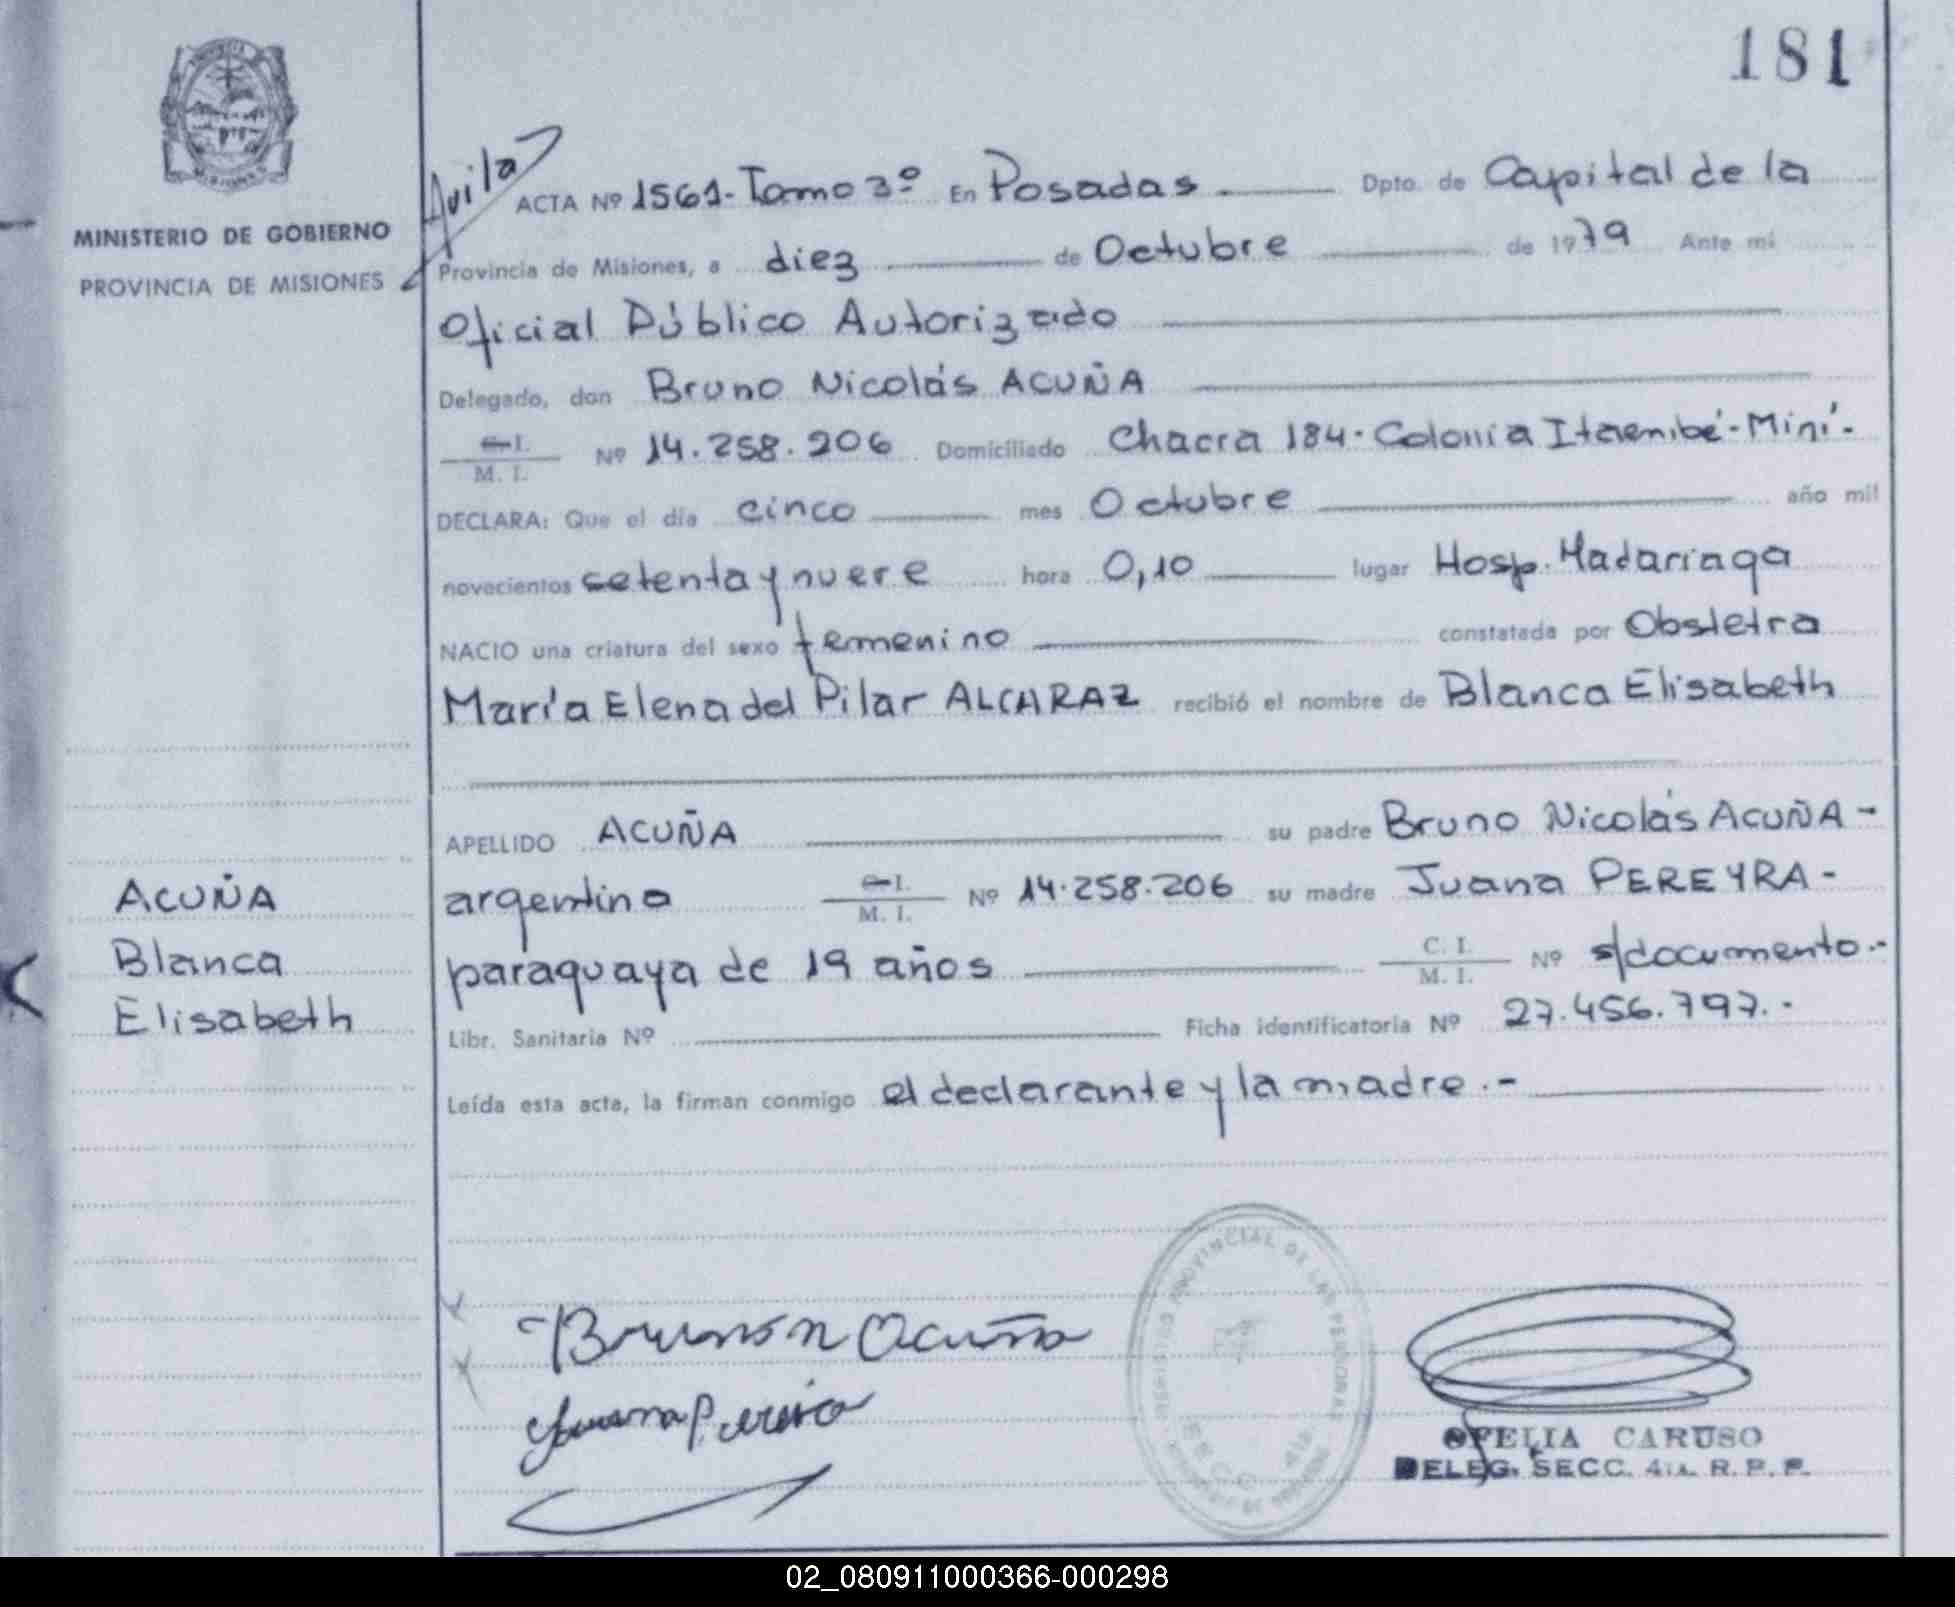 181
MINISTERIO DE GOBIERNO
PROVINCIA DE MISIONES
Avila
ACTA Nº 1561-Tomo 3º En Posadas Dpto. de Capital de la
Provincia de Misiones, a diez de Octubre de 1979 Ante mi
Oficial Público Autorizado
Delegado, don Bruno Nicolás ACUÑA
C.I. M. I. Nº 14.258.206 Domiciliado Chacra 184- Colonia Itaembé-Miní-
DECLARA: Que el día cinco mes Octubre año mil
novecientos setenta y nueve hora 0,10 lugar Hosp. Madariaga
NACIO una criatura del sexo femenino constatada por Obstetra
María Elena del Pilar ALCARAZ recibió el nombre de Blanca Elisabeth
APELLIDO ACUÑA su padre Bruno Nicolás ACUÑA -
argentino C.I. M. I. Nº 14.258.206 su madre Juana PEREYRA -
paraguaya de 19 años C. I. M. I. Nº s/documento.-
Libr. Sanitaria Nº Ficha identificatoria Nº 27.456.797.-
Leída esta acta, la firman conmigo el declarante y la madre.-
ACUÑA
Blanca
Elisabeth
OFELIA CARUSO
DELEG. SECC. 4ta. R. P. P.
02_080911000366-000298